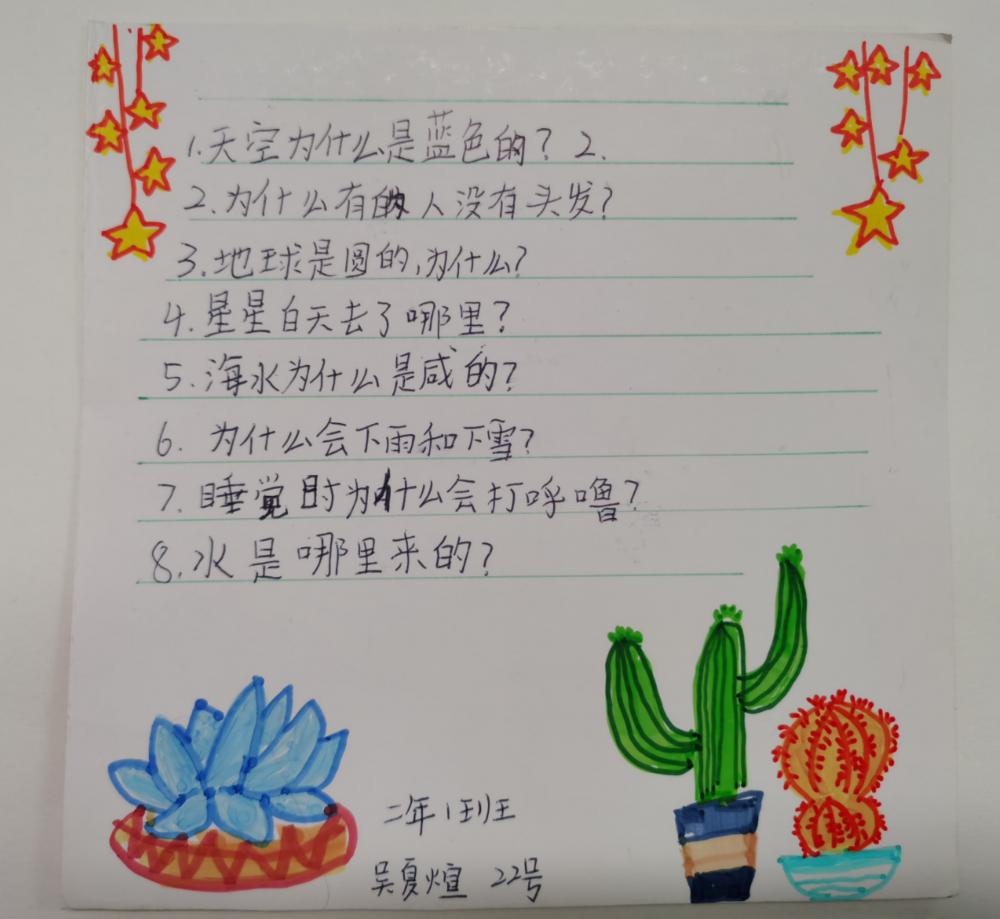 1.天空为什么是蓝色的？2.
2.为什么有的人没有头发？
3.地球是圆的,为什么？
4.星星白天去了哪里？
5.海水为什么是咸的？
6.为什么会下雨和下雪？
7.睡觉时为什么会打呼噜？
8.水是哪里来的？
二年1班
吴夏煊 22号